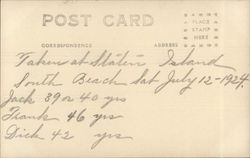 POST CARD
PLACE
STAMP
HERE
CORRESPONDENCE ADDRESS
Taken at Staten Island
South Beach Sat July 12-1924.
Jack 39 or 40 yrs
Frank 46 yrs
Dick 42 yrs